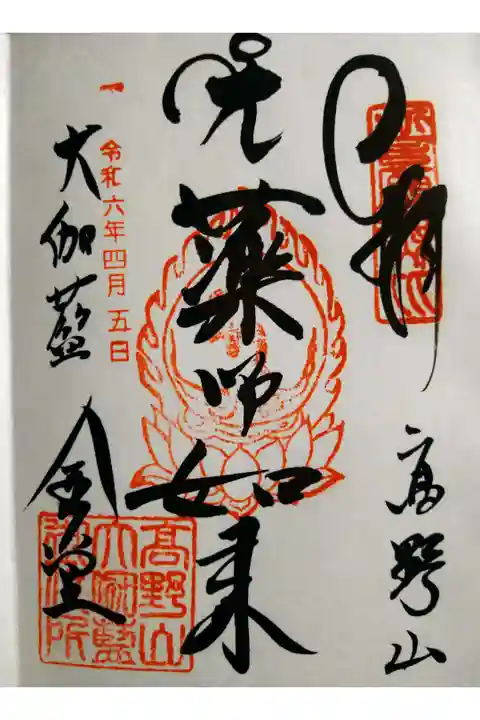 奉拝
高野山
薬師如来
令和六年四月五日
大伽藍
金堂
髙野山
大伽藍